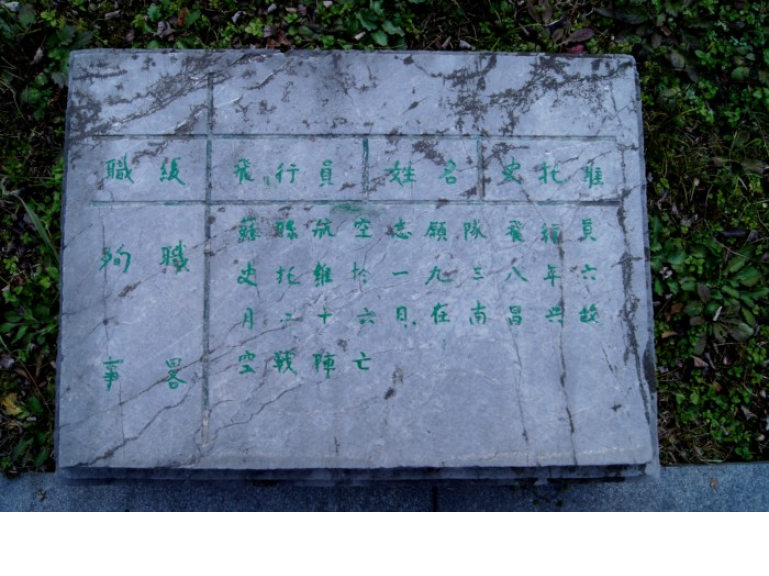 職級 飛行員 姓名 史托維
殉職
事畧
蘇聯航空志願隊飛行員
史托維於一九三八年六
月二十六日在南昌與敵
空戰陣亡